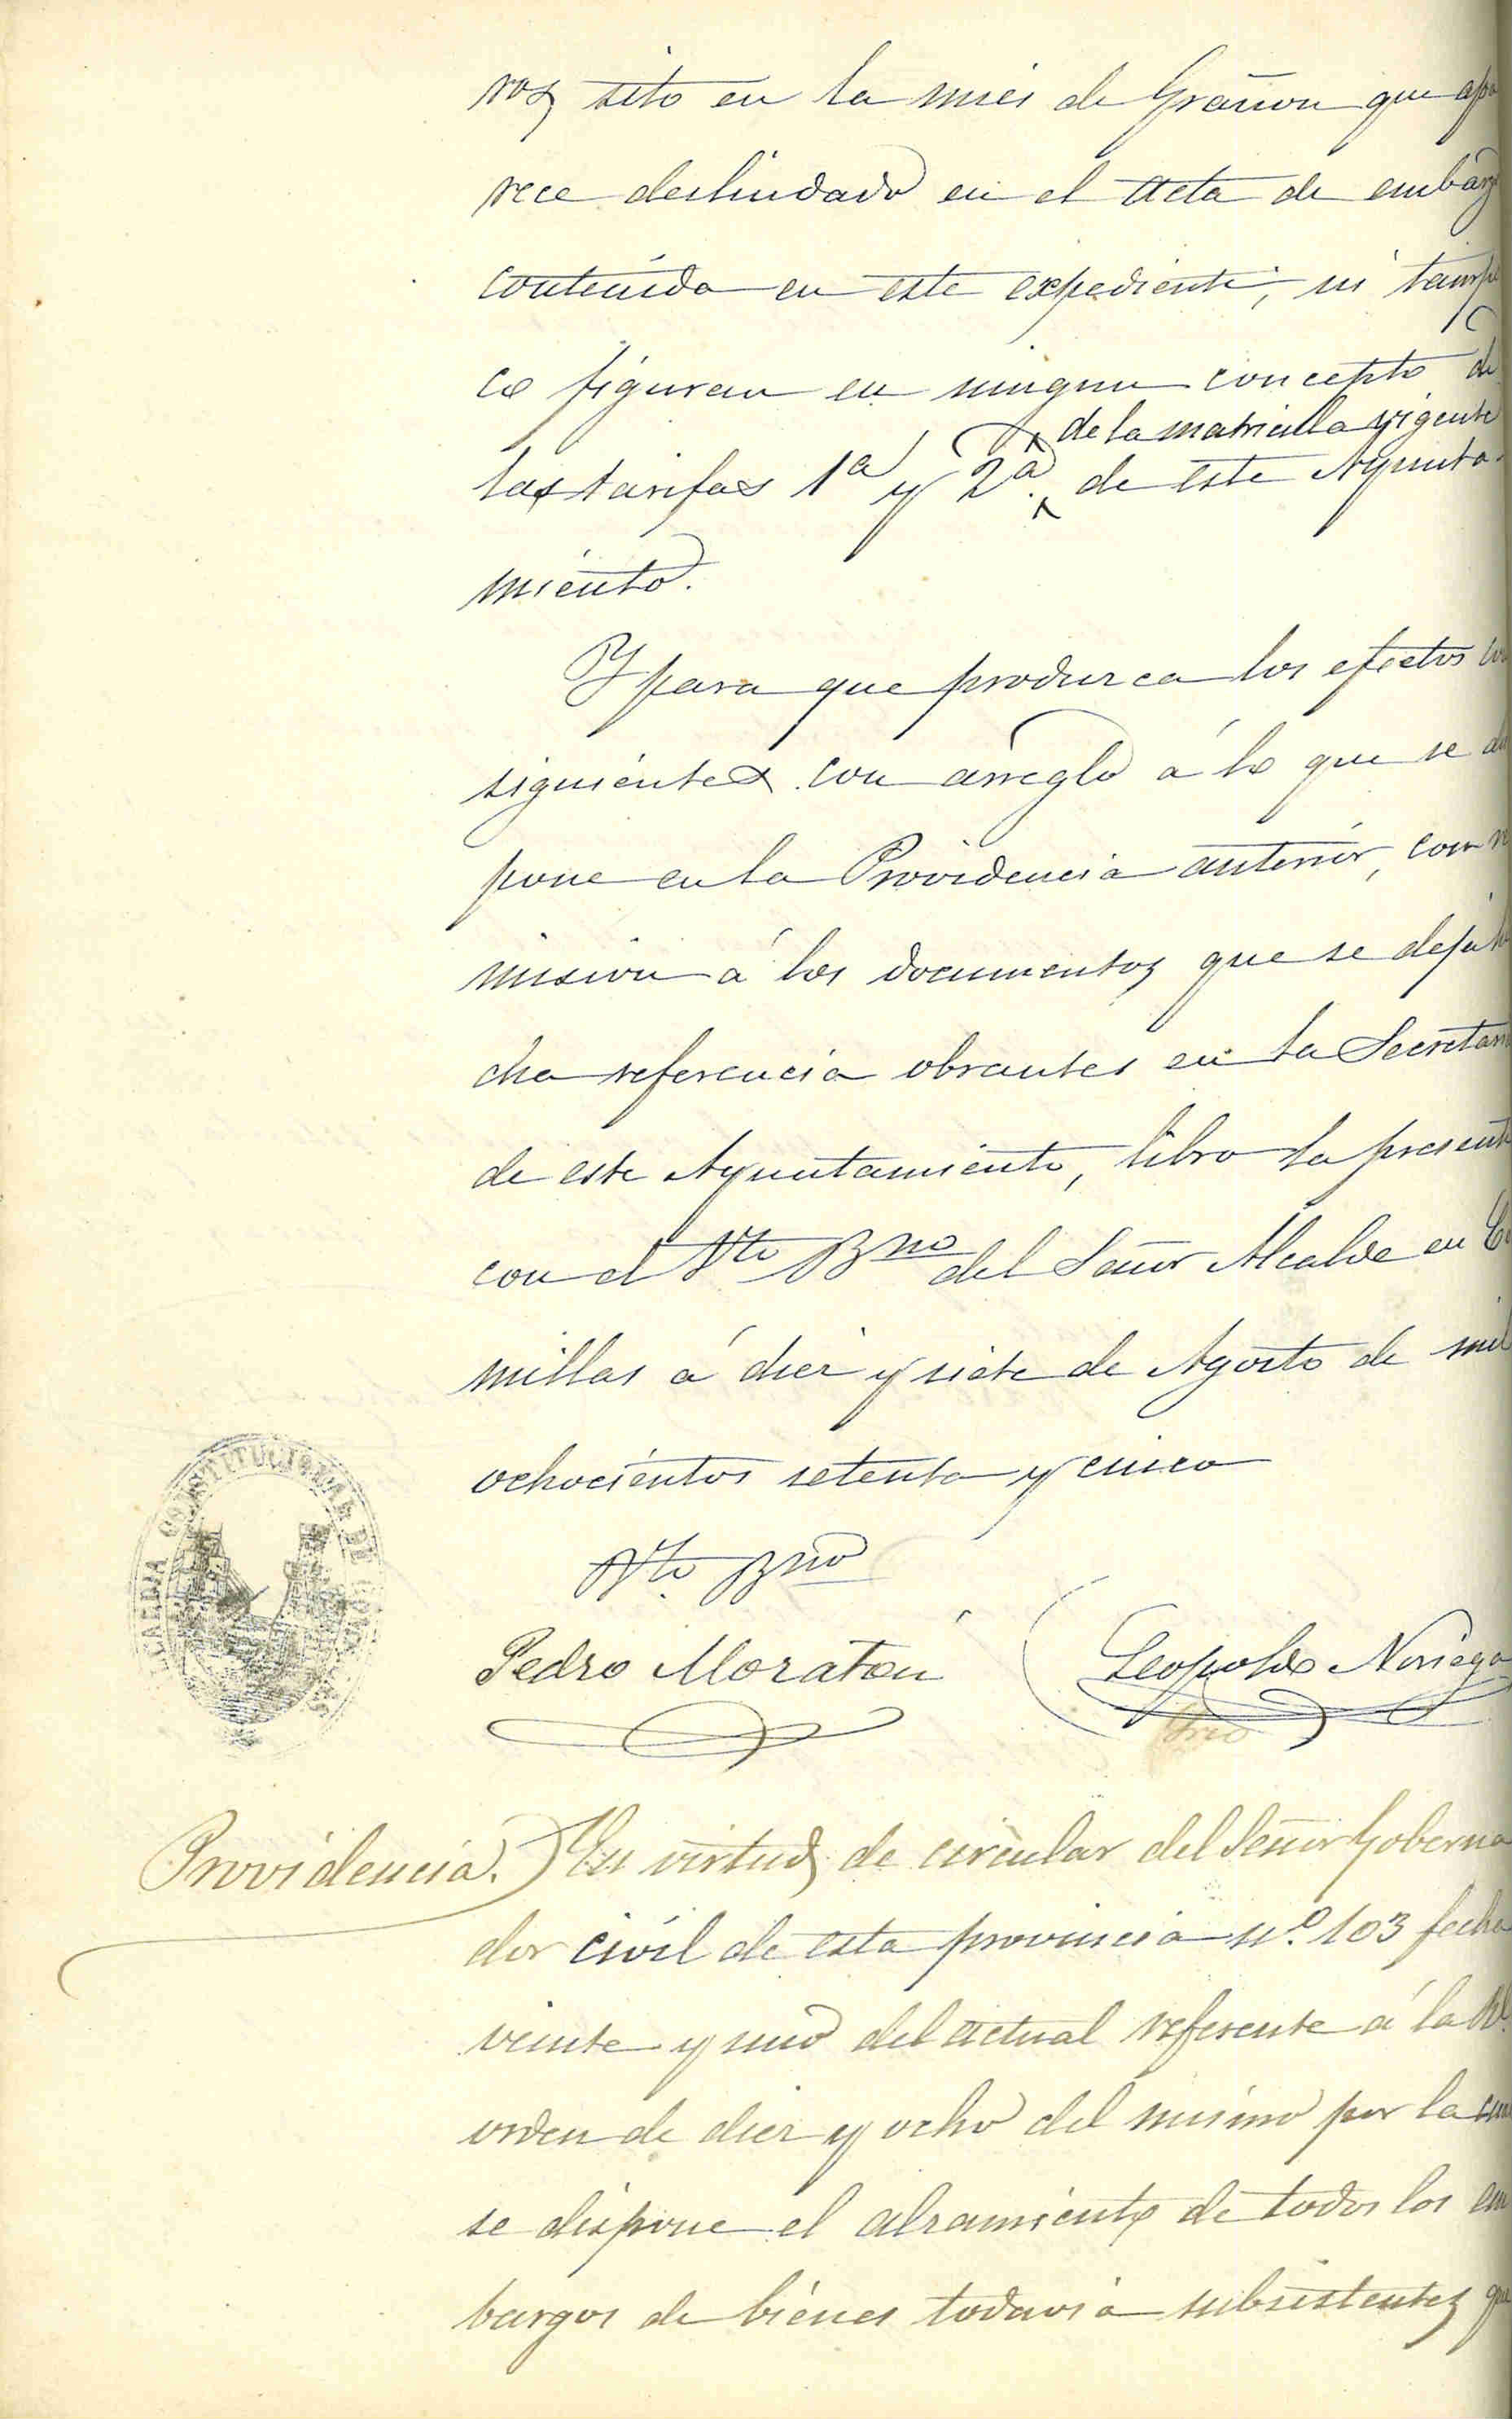 ros sito en la mies de Grañon que apa
rece deslindado en el acta de embarg
contenida en este expediente, ni tampo
co figuran en ningun concepto de
de la matricula vigente
las tarifas 1ª y 2ª. de este Ayunta-
miento.
Y para que produzca los efectos con
siguientes con arreglo á lo que se dis
pone en la Providencia anterior, con re
mision á los documentos que se deja he
cha referencia obrantes en la Secretari
de este Ayuntamiento, libro la present
con el Vto Bno del Señor Alcalde en Co
millas á diez y siete de Agosto de mil
ochocientos setenta y cinco
Vto Bno
Pedro Moratón Leopoldo Noriega
Srio
ALCALDIA CONSTITUCIONAL DE COMILLAS
Providencia. En virtud de circular del Señor Goberna
dor civil de esta provincia n.º 103 fecha
veinte y uno del actual referente á la Rl.
orden de diez y ocho del mismo por la cual
se dispone el alzamiento de todos los em
bargos de bienes todavia subsistentes que